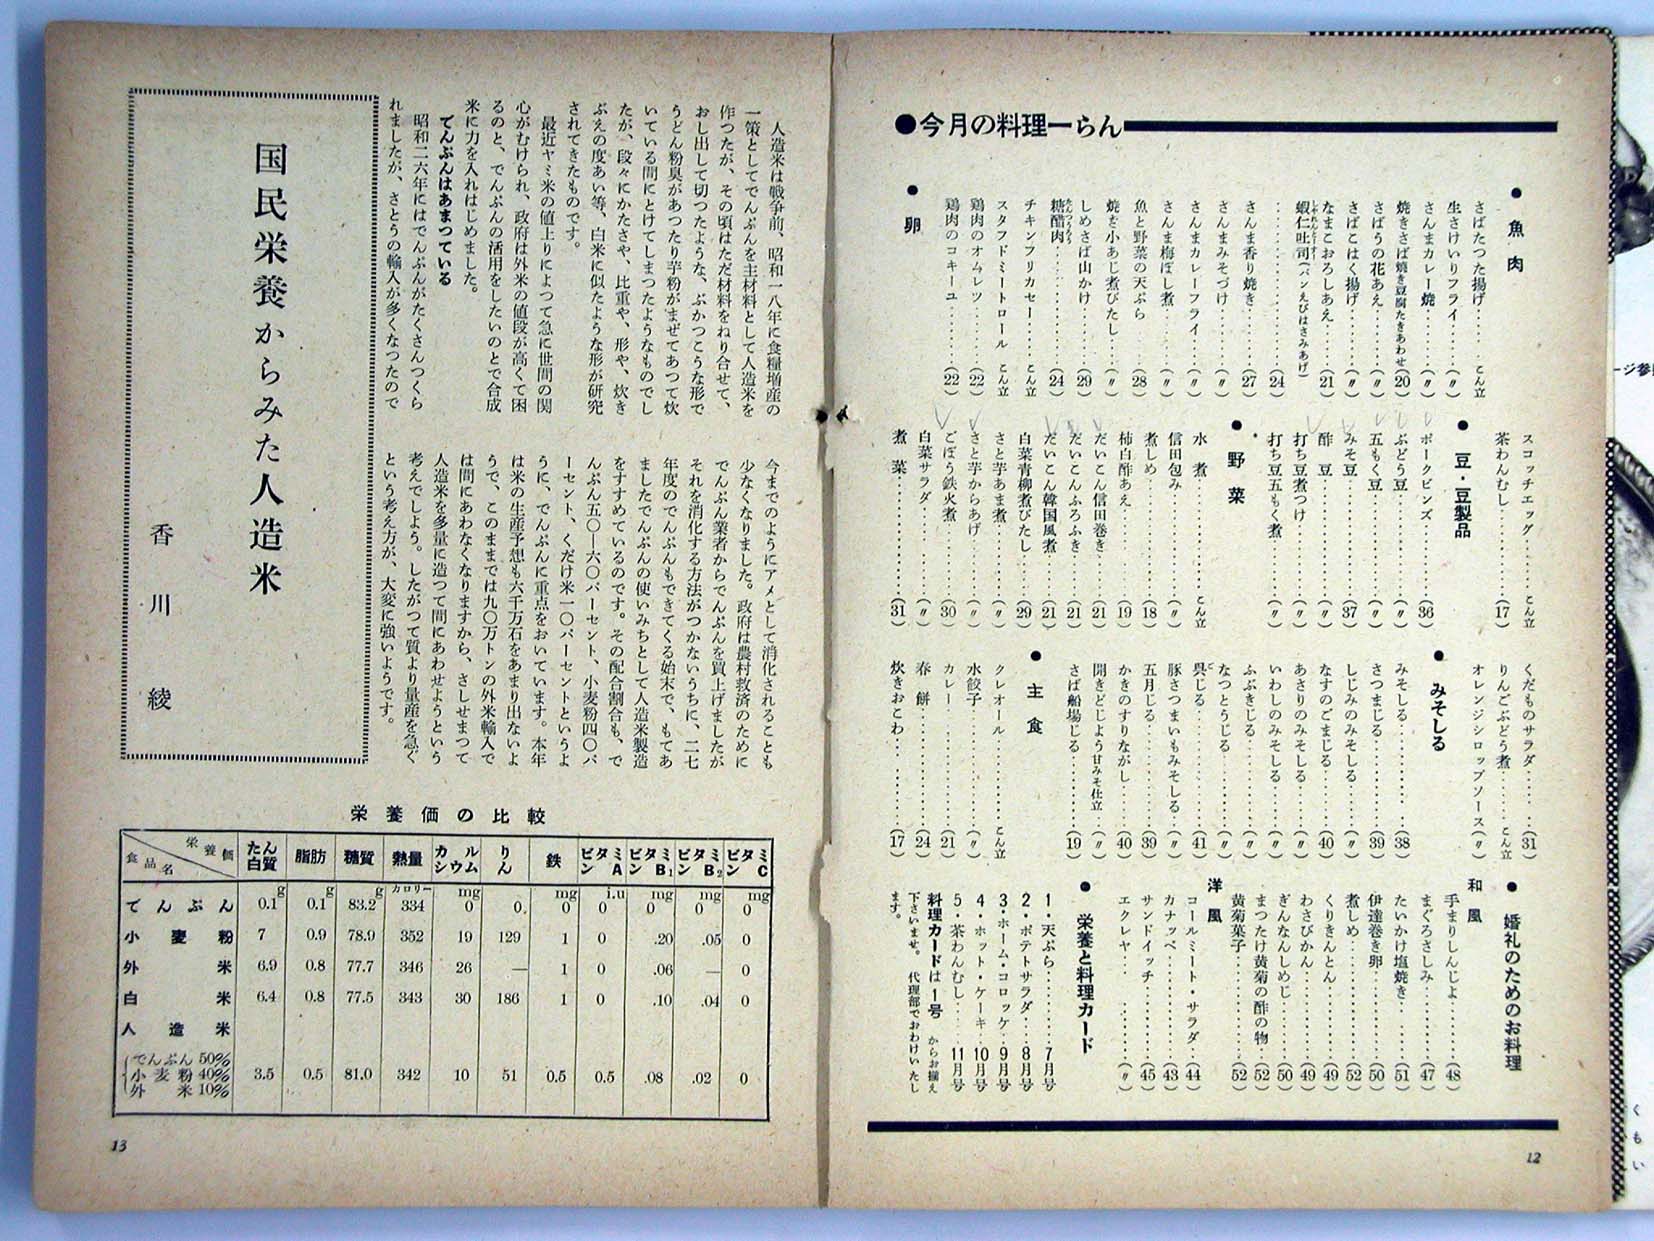 ●今月の料理一らん
●魚肉
さばたつた揚げ……こん立
生さけいりフライ……(〃)
さんまカレー焼……(〃)
焼きさば焼き豆腐たきあわせ(20)
さばうの花あえ……(〃)
さばこはく揚げ……(〃)
なまこおろしあえ……(21)
蝦仁吐司(パンえびはさみあげ)
……(24)
さんま香り焼き……(27)
さんまみそづけ……(〃)
さんまカレーフライ……(〃)
さんま梅ぼし煮……(〃)
魚と野菜の天ぷら……(28)
焼き小あじ煮びたし……(〃)
しめさば山かけ……(29)
糖醋肉……(24)
チキンフリカセー……こん立
スタフドミートロール こん立
鶏肉のオムレツ……(22)
鶏肉のコキーユ……(22)
●卵
スコッチエッグ……こん立
茶わんむし……(17)
●豆・豆製品
ポークビンズ……(36)
ぶどう豆……(〃)
五もく豆……(〃)
みそ豆……(37)
酢豆……(〃)
打ち豆煮つけ……(〃)
打ち豆五もく煮……(〃)
●野菜
水煮……こん立
信田包み……(〃)
煮しめ……(18)
柿白酢あえ……(19)
だいこん信田巻き……(21)
だいこんふろふき……(21)
だいこん韓国風煮……(21)
白菜青柳煮びたし……(29)
さと芋あま煮……(〃)
さと芋からあげ……(〃)
ごぼう鉄火煮……(30)
白菜サラダ……(〃)
煮菜……(31)
くだものサラダ……(31)
りんごぶどう煮……こん立
オレンジシロップソース(〃)
●みそしる
みそしる……(38)
さつまじる……(39)
しじみのみそしる……(〃)
なすのごまじる……(40)
あさりのみそしる……(〃)
いわしのみそしる……(〃)
ふぶきじる……(〃)
なつとうじる……(〃)
呉じる……(41)
豚さつまいもみそしる…(〃)
五月じる……(39)
かきのすりながし……(40)
開きどじよう甘みそ仕立(〃)
さば船場じる……(19)
●主食
クレオール……こん立
水餃子……(〃)
カレー……(21)
春餅……(24)
炊きおこわ……(17)
●婚礼のためのお料理
和風
手まりしんじよ……(48)
まぐろさしみ……(47)
たいかけ塩焼き……(51)
伊達巻き卵……(50)
煮しめ……(52)
くりきんとん……(49)
わさびかん……(49)
ぎんなんしめじ……(50)
まつたけ黄菊の酢の物…(52)
黄菊菓子……(52)
洋風
コールミート・サラダ…(44)
カナッペ……(43)
サンドイッチ……(45)
エクレヤ……(〃)
●栄養と料理カード
1・天ぷら……7月号
2・ポテトサラダ……8月号
3・ホーム・コロッケ…9月号
4・ホット・ケーキ…10月号
5・茶わんむし……11月号
料理カードは1号からお揃え
下さいませ。代理部でおわけいたし
ます。
12
国民栄養からみた人造米
香川綾
人造米は戦争前、昭和一八年に食糧増産の
一策としてでんぷんを主材料として人造米を
作つたが、その頃はただ材料をねり合せて、
おし出して切つたような、ぶかつこうな形で
うどん粉臭があつたり芋粉がまぜてあつて炊
いている間にとけてしまつたようなものでし
たが、段々にかたさや、比重や、形や、炊き
ぶえの度あい等、白米に似たような形が研究
されてきたものです。
最近ヤミ米の値上りによつて急に世間の関
心がむけられ、政府は外米の値段が高くて困
るのと、でんぷんの活用をしたいのとで合成
米に力を入れはじめました。
でんぷんはあまつている
昭和二六年にはでんぷんがたくさんつくら
れましたが、さとうの輸入が多くなつたので
今までのようにアメとして消化されることも
少なくなりました。政府は農村救済のために
でんぷん業者からでんぷんを買上げましたが
それを消化する方法がつかないうちに、二七
年度のでんぷんもできてくる始末で、もてあ
ましたでんぷんの使いみちとして人造米製造
をすすめているのです。その配合割合も、で
んぷん五〇―六〇パーセント、小麦粉四〇パ
ーセント、くだけ米一〇パーセントというよ
うに、でんぷんに重点をおいています。本年
は米の生産予想も六千万石をあまり出ないよ
うで、このままでは九〇万トンの外米輸入で
は間にあわなくなりますから、さしせまつて
人造米を多量に造つて間にあわせようという
考えでしよう。したがつて質より量産を急ぐ
という考え方が、大変に強いようです。
栄養価の比較
栄養価 食品名 たん白質 脂肪 糖質 熱量 カルシウム りん 鉄 ビタミンA ビタミンB₁ ビタミンB₂ ビタミンC
g g g カロリー mg mg i.u mg mg mg
でんぷん 0.1 0.1 83.2 334 0 0 0 0 0 0 0
小麦粉 7 0.9 78.9 352 19 129 1 0 .20 .05 0
外米 6.9 0.8 77.7 346 26 — 1 0 .06 — 0
白米 6.4 0.8 77.5 343 30 186 1 0 .10 .04 0
人造米
でんぷん50%
小麦粉40% 3.5 0.5 81.0 342 10 51 0.5 0.5 .08 .02 0
外米10%
13
ージ参照
くもい